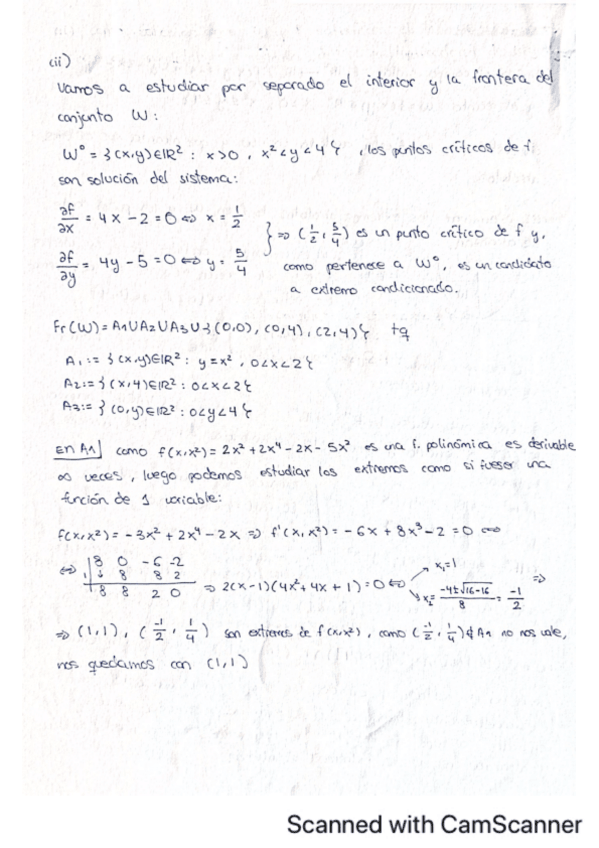 (ii)
Vamos a estudiar por separado el interior y la frontera del
conjunto W:
W° = {(x,y)∈ℝ² : x>0, x²<y<4}, los puntos críticos de f
son solución del sistema:
∂f/∂x = 4x - 2 = 0 ⇔ x = 1/2
∂f/∂y = 4y - 5 = 0 ⇔ y = 5/4
} ⇒ (1/2, 5/4) es un punto crítico de f y,
como pertenece a W°, es un candidato
a extremo condicionado.
Fr(W) = A1∪A2∪A3∪{(0,0), (0,4), (2,4)} tq
A1 := {(x,y)∈ℝ² : y = x², 0<x<2}
A2 := {(x,4)∈ℝ² : 0<x<2}
A3 := {(0,y)∈ℝ² : 0<y<4}
En A1 como f(x,x²) = 2x² + 2x⁴ - 2x - 5x² es una f. polinómica es derivable
∞ veces, luego podemos estudiar los extremos como si fuesen una
función de 1 variable:
f(x,x²) = -3x² + 2x⁴ - 2x ⇒ f'(x,x²) = -6x + 8x³ - 2 = 0 ⇔
⇔ 8 0 -6 -2
1 8 8 2
8 8 2 0
⇒ 2(x-1)(4x²+4x+1) = 0 ⇔ x₁=1
x₂ = (-4±√16-16)/8 = -1/2 ⇒
⇒ (1,1), (-1/2, 1/4) son extremos de f(x,x²), como (-1/2, 1/4)∉A1 no nos vale,
nos quedamos con (1,1)
Scanned with CamScanner